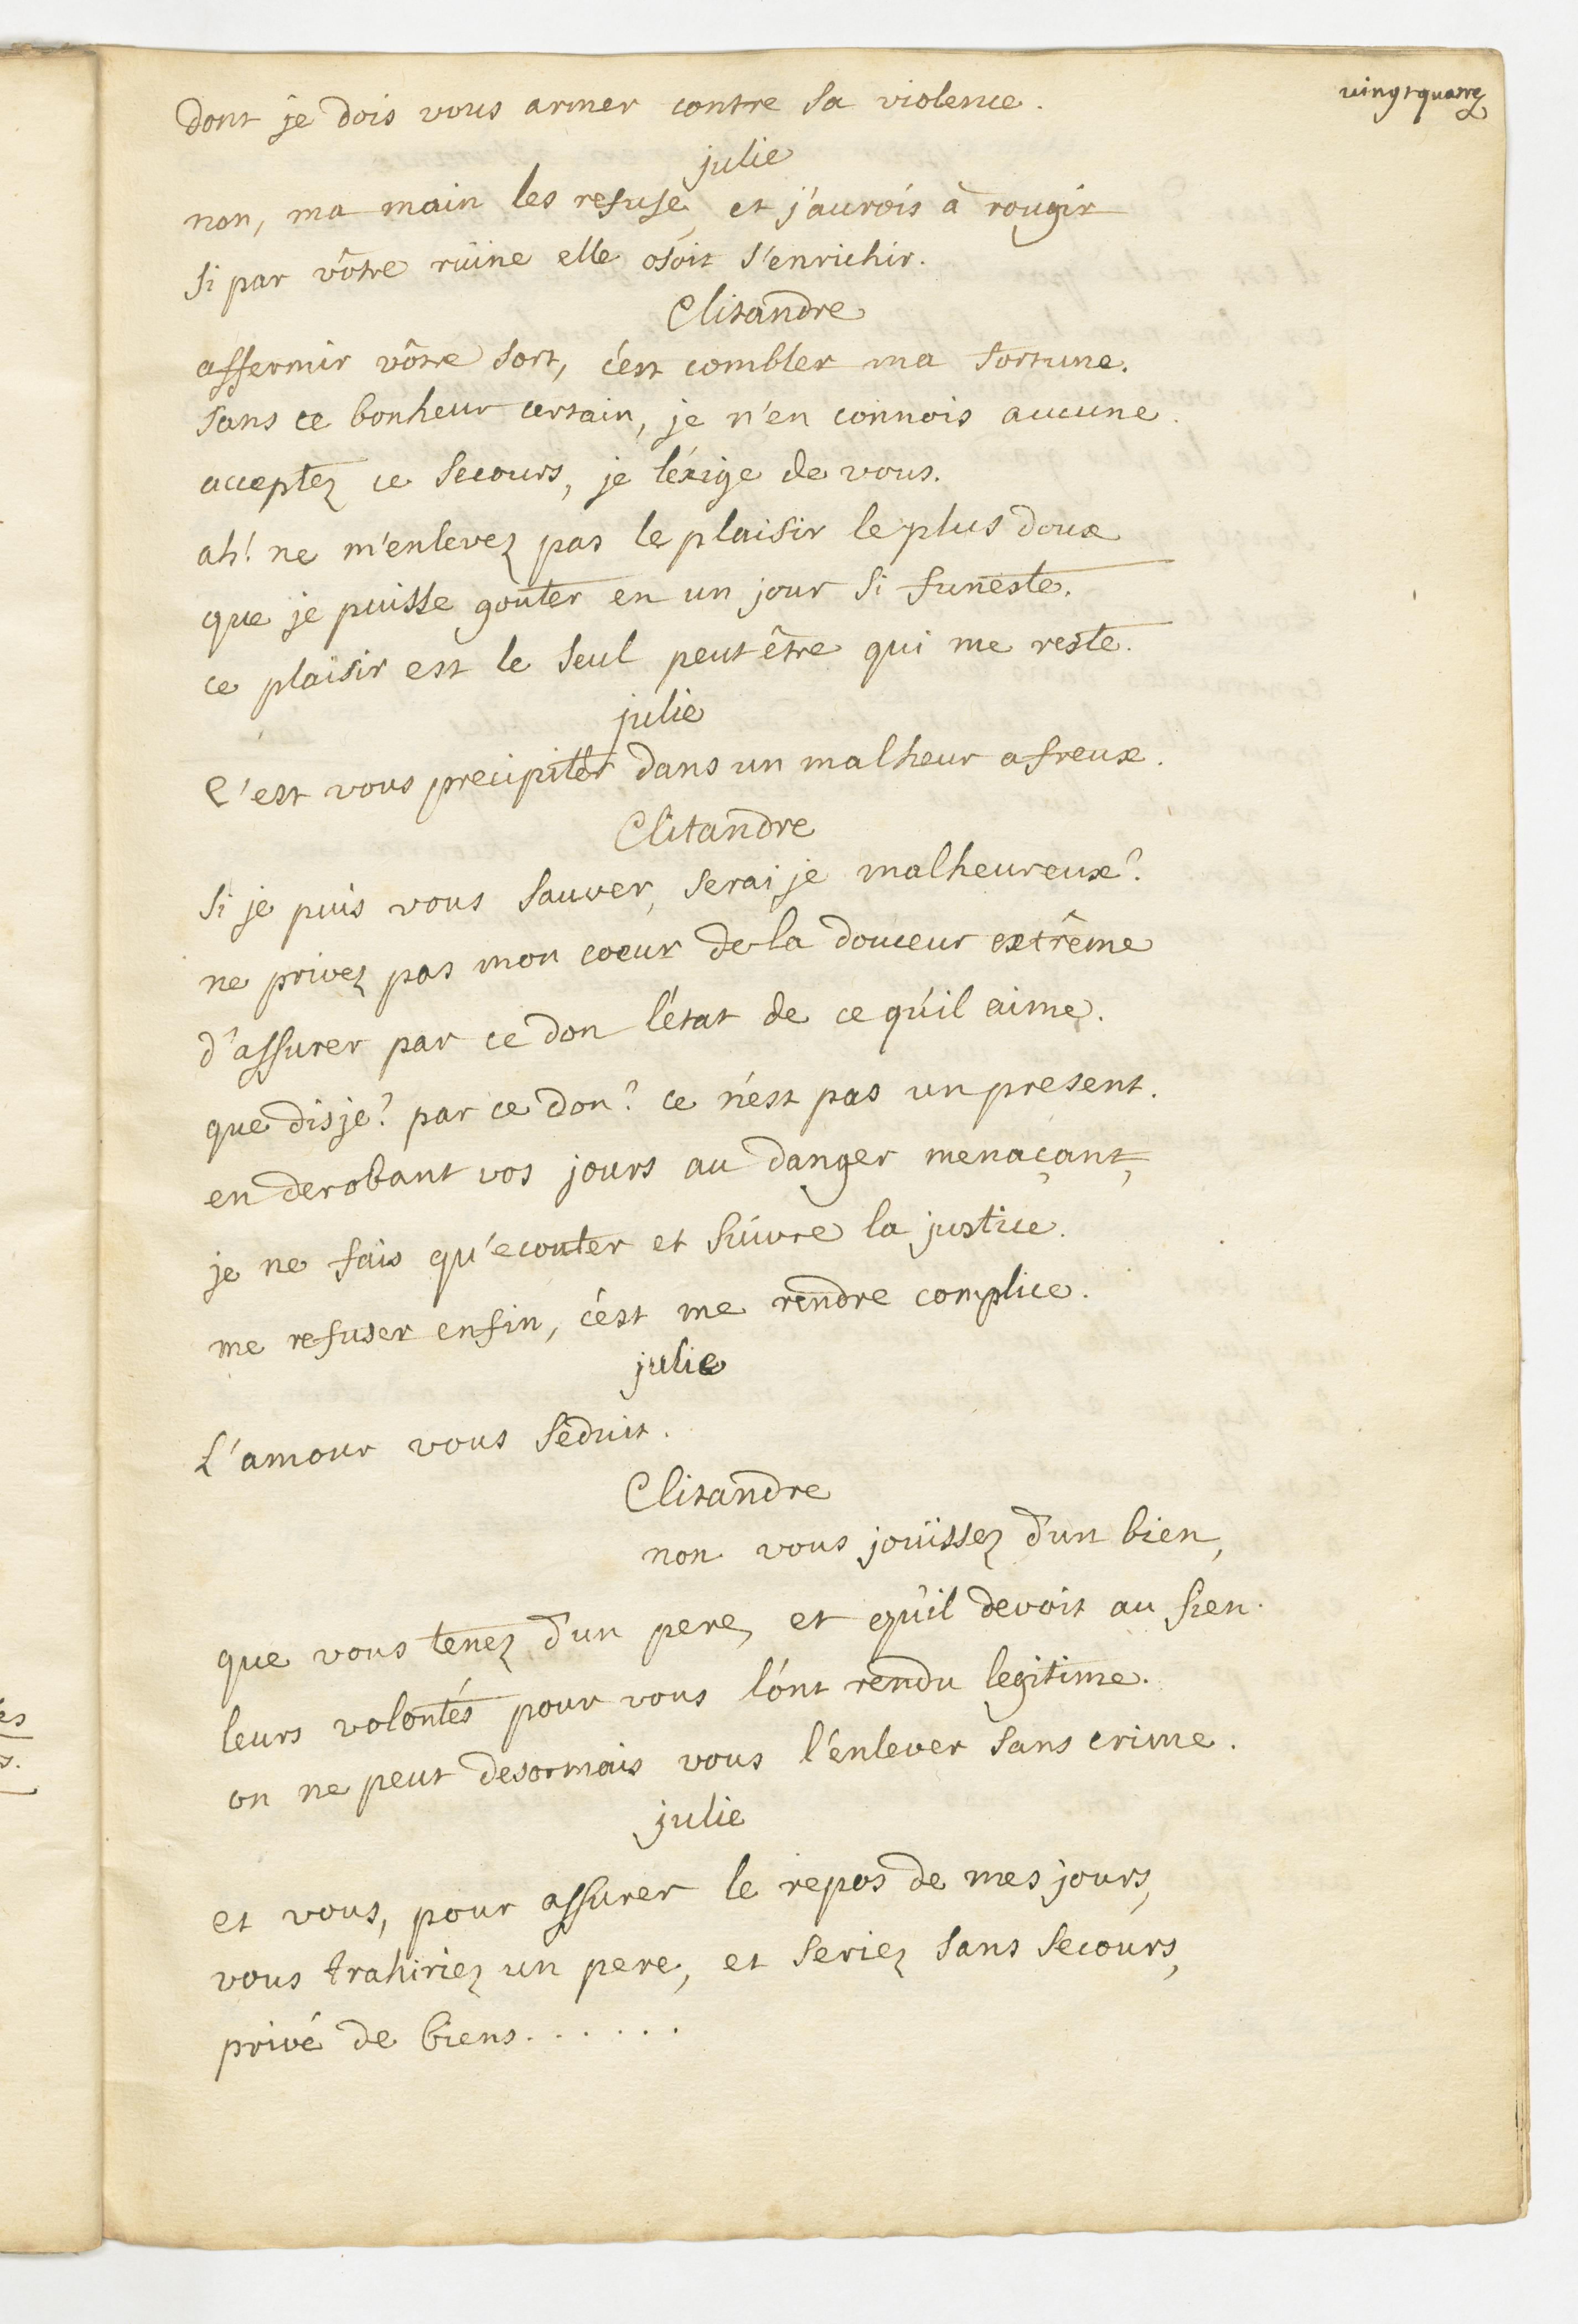 vingtquatre
dont je dois vous armer contre sa violence.
julie
non, ma main les refuse, et j'aurois à rougir
si par vôtre rüine elle osoit s'enrichir.
Clitandre
affermir vôtre sort, c'est combler ma fortune.
sans ce bonheur certain, je n'en connois aucune.
acceptez ce secours, je l'éxige de vous.
ah! ne m'enlevez pas le plaisir le plus doux
que je puisse gouter en un jour si funeste.
ce plaisir est le seul peut être qui me reste.
julie
C'est vous precipiter dans un malheur afreux.
Clitandre
si je puis vous sauver, serai je malheureux?
ne privez pas mon coeur de la douceur extrême
d'assurer par ce don l'état de ce qu'il aime.
que dis je? par ce don? ce n'est pas un present.
en derobant vos jours au danger menaçant,
je ne fais qu'ecouter et suivre la justice.
me refuser enfin, c'est me rendre complice.
julie
L'amour vous séduit.
Clitandre
non vous joüissez d'un bien,
que vous tenez d'un pere, et qu'il devoit au sien.
leurs volontés pour vous l'ont rendu legitime.
on ne peut desormais vous l'enlever sans crime.
julie
et vous, pour assurer le repos de mes jours,
vous trahiriez un pere, et seriez sans secours,
privé de biens......